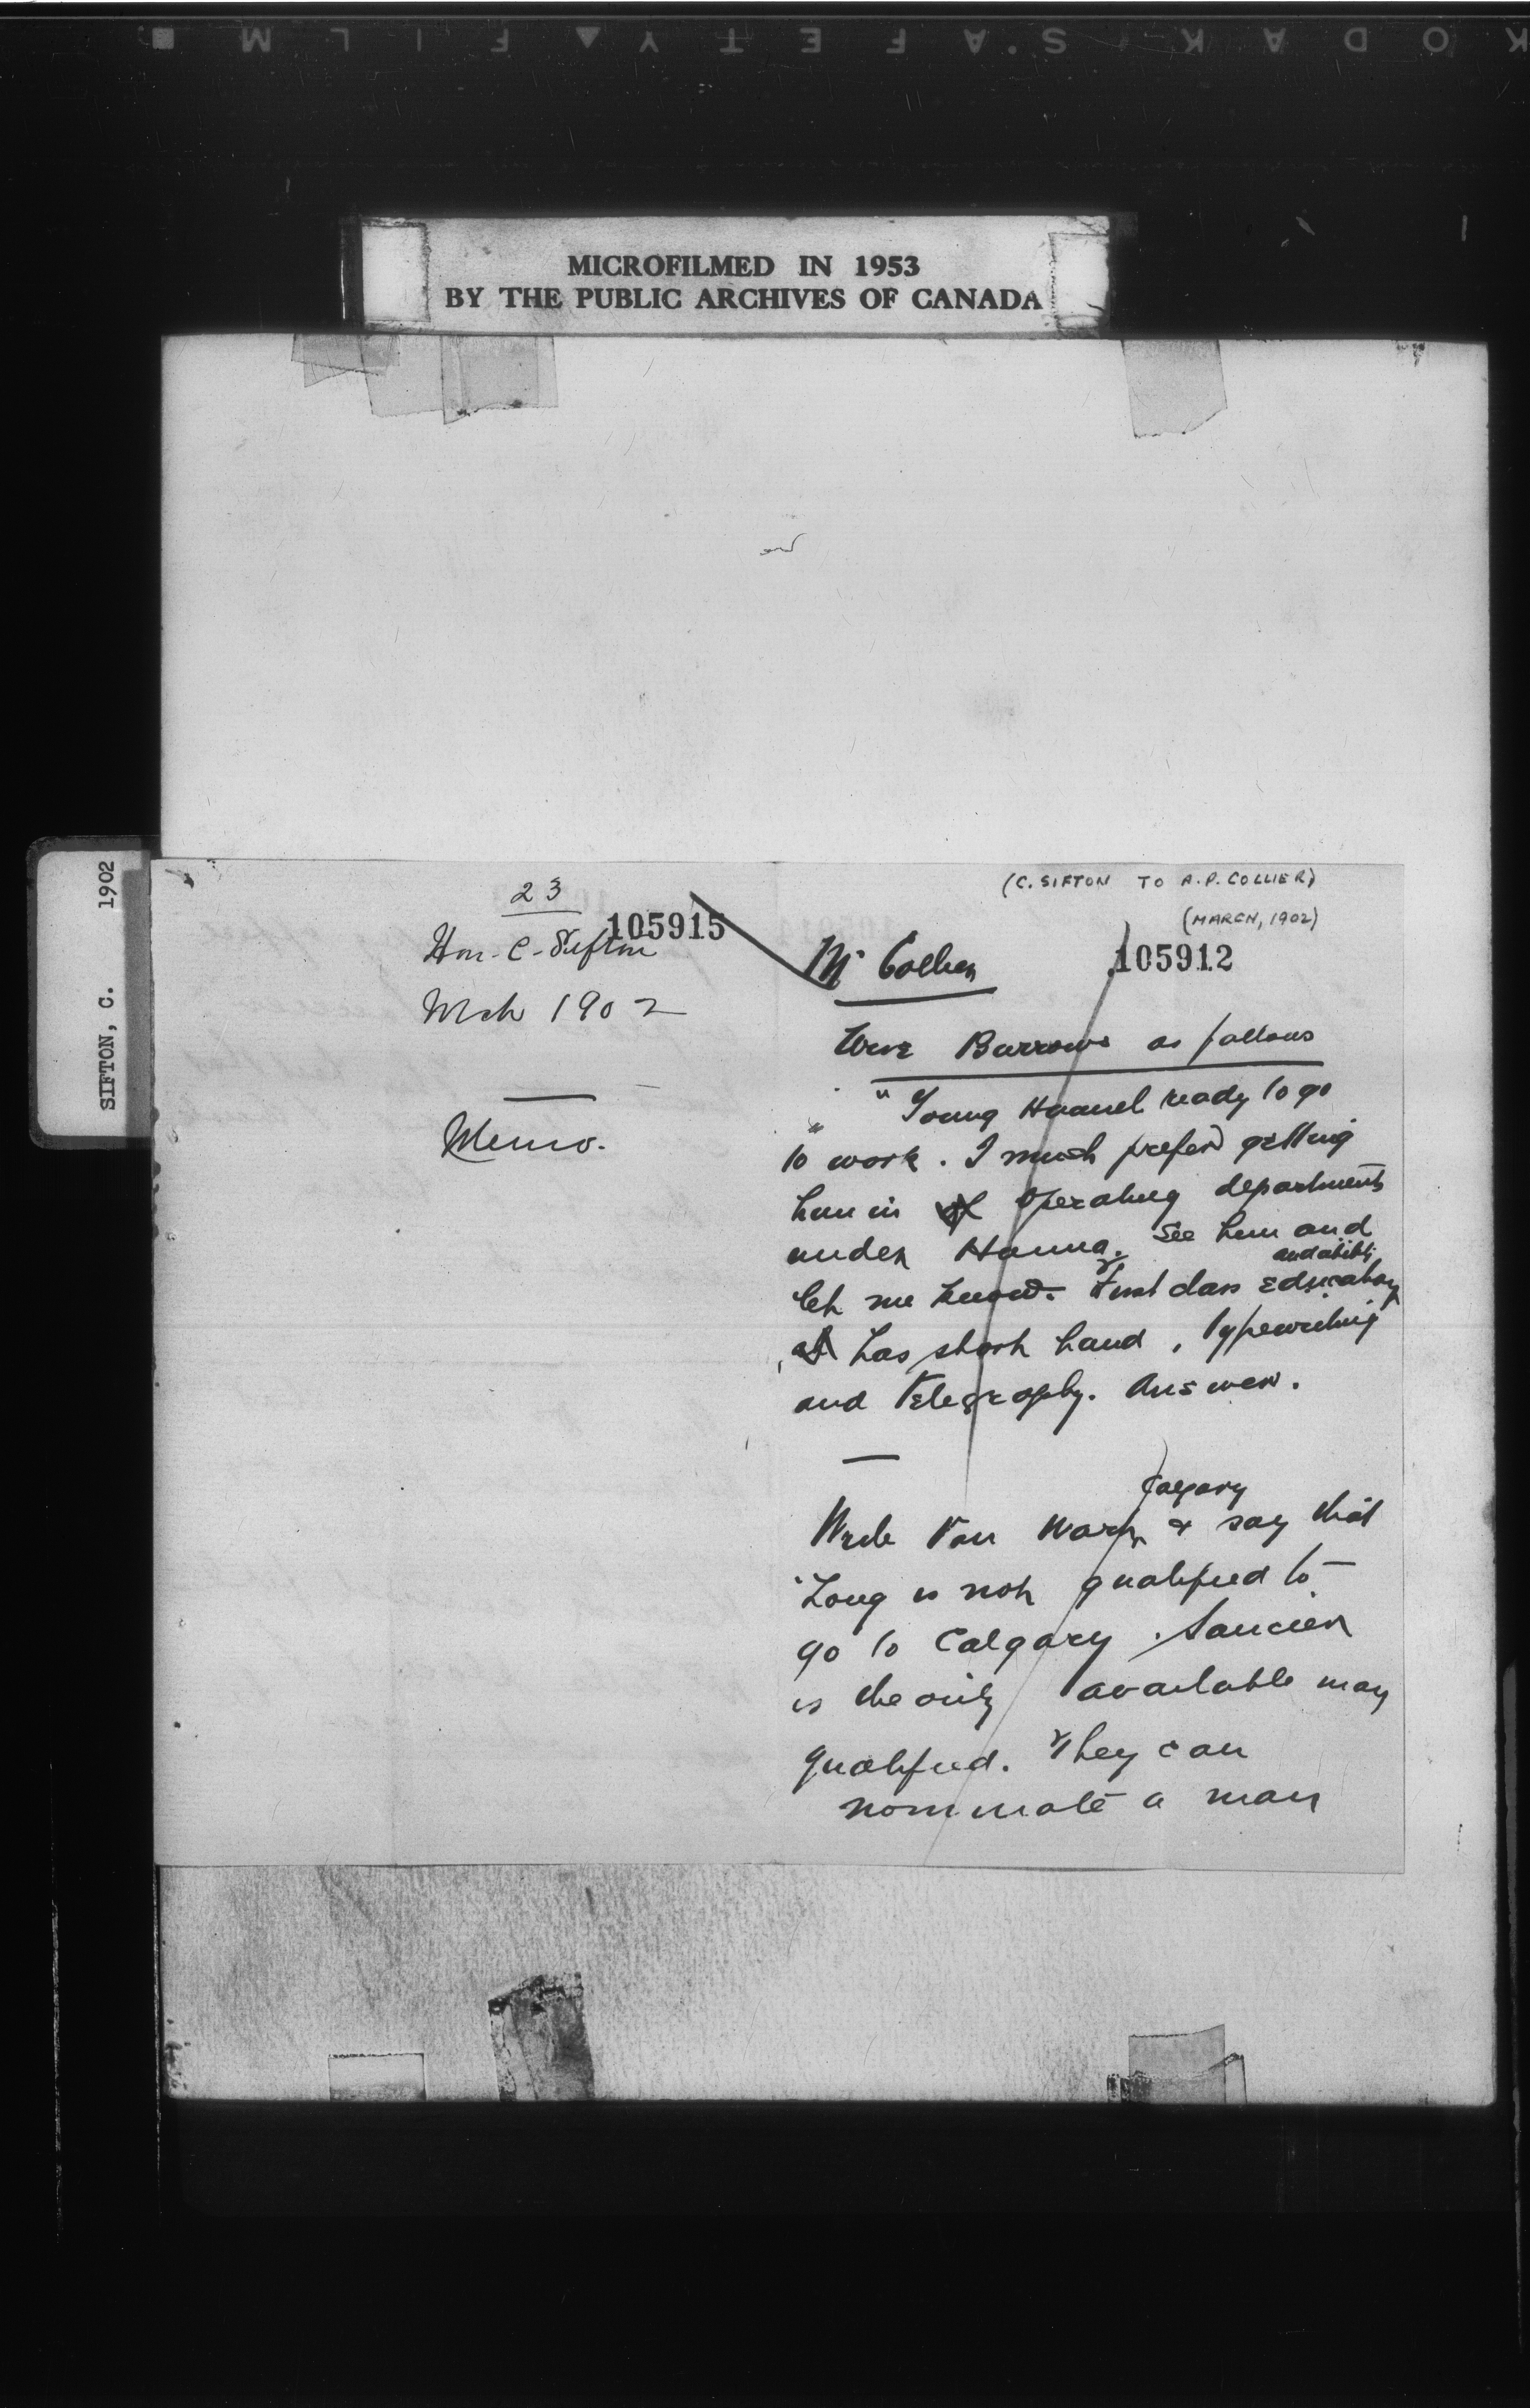 KODAK SAFETY FILM
MICROFILMED IN 1953
BY THE PUBLIC ARCHIVES OF CANADA
SIFTON, C. 1902
23
105915
Hon. C. Sifton
Mch 1902
Memo.
(C. SIFTON TO A.P. COLLIER)
(MARCH, 1902)
105912
Mr Collier
Wire Burrows as follows
"Young Haanel ready to go
to work. I much prefer getting
him in operating department
under Hanna. See him and
let me know. First class education and ability
has short hand, typewriting
and telegraphy. Answer.
Write Van Wart Calgary & say that
Long is not qualified to
go to Calgary. Saucier
is the only available man
qualified. They can
nominate a man